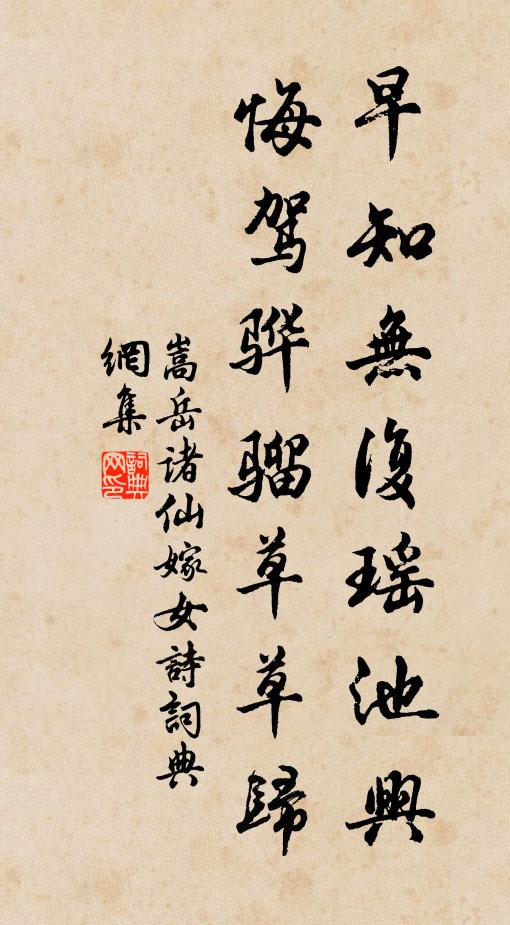 早知無復瑶池興
悔驾骅骝草草歸
嵩岳诸仙嫁女詩詞典
網集
詞典
网印